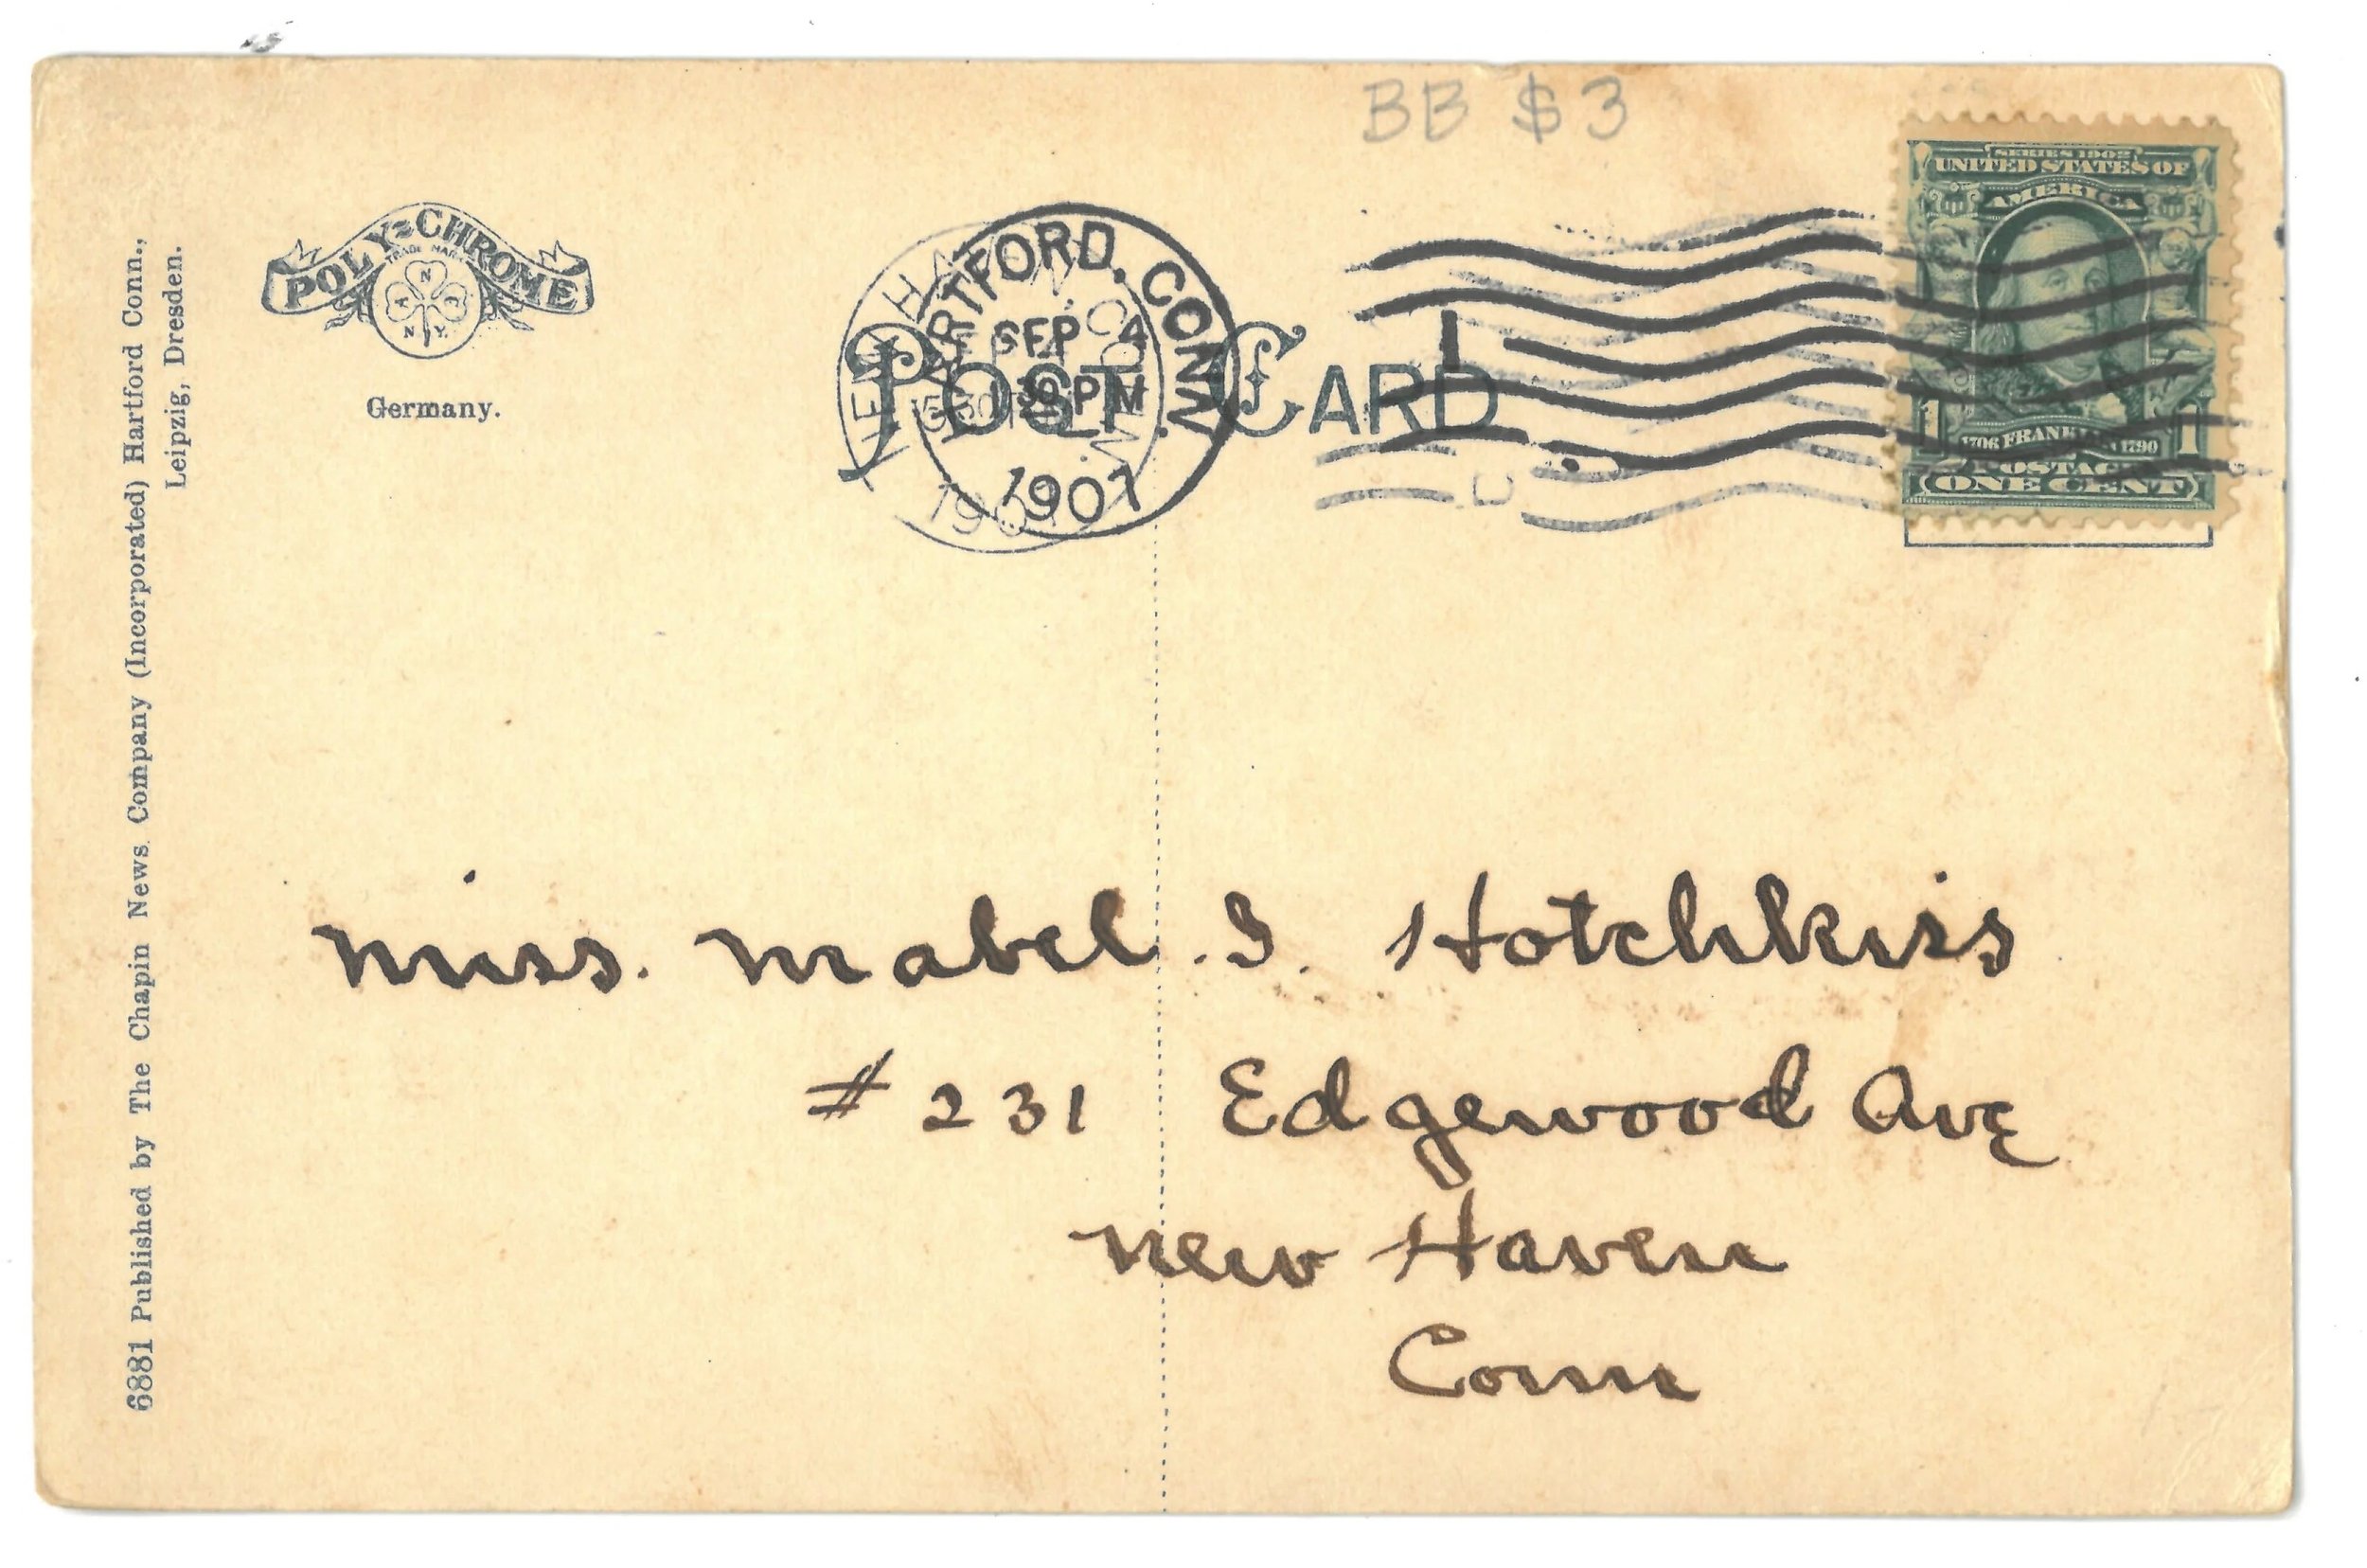 BB $3
POLY-CHROME
TRADE MARK
A N C
N.Y.
Germany.
POST CARD
HARTFORD, CONN.
SEP 4
30 PM
1907
NEW HAVEN, CONN.
190
SERIES 1902
UNITED STATES OF
AMERICA
1 1706 FRANKLIN 1790 1
POSTAGE
ONE CENT
6881 Published by The Chapin News Company (Incorporated) Hartford Conn.,
Leipzig, Dresden.
Miss. Mabel. I. Hotchkiss
# 231 Edgewood Ave
New Haven
Conn